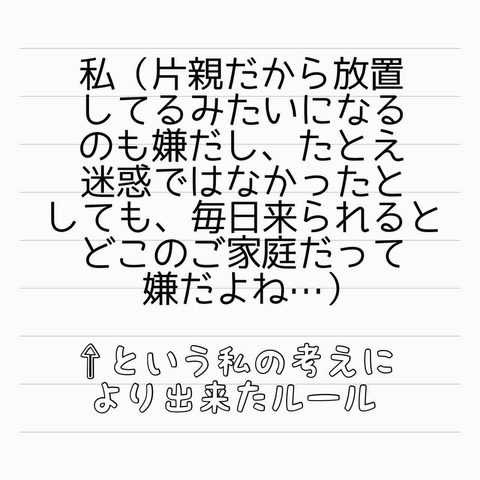 私（片親だから放置
してるみたいになる
のも嫌だし、たとえ
迷惑ではなかったと
しても、毎日来られると
どこのご家庭だって
嫌だよね…）
⇑という私の考えに
より出来たルール